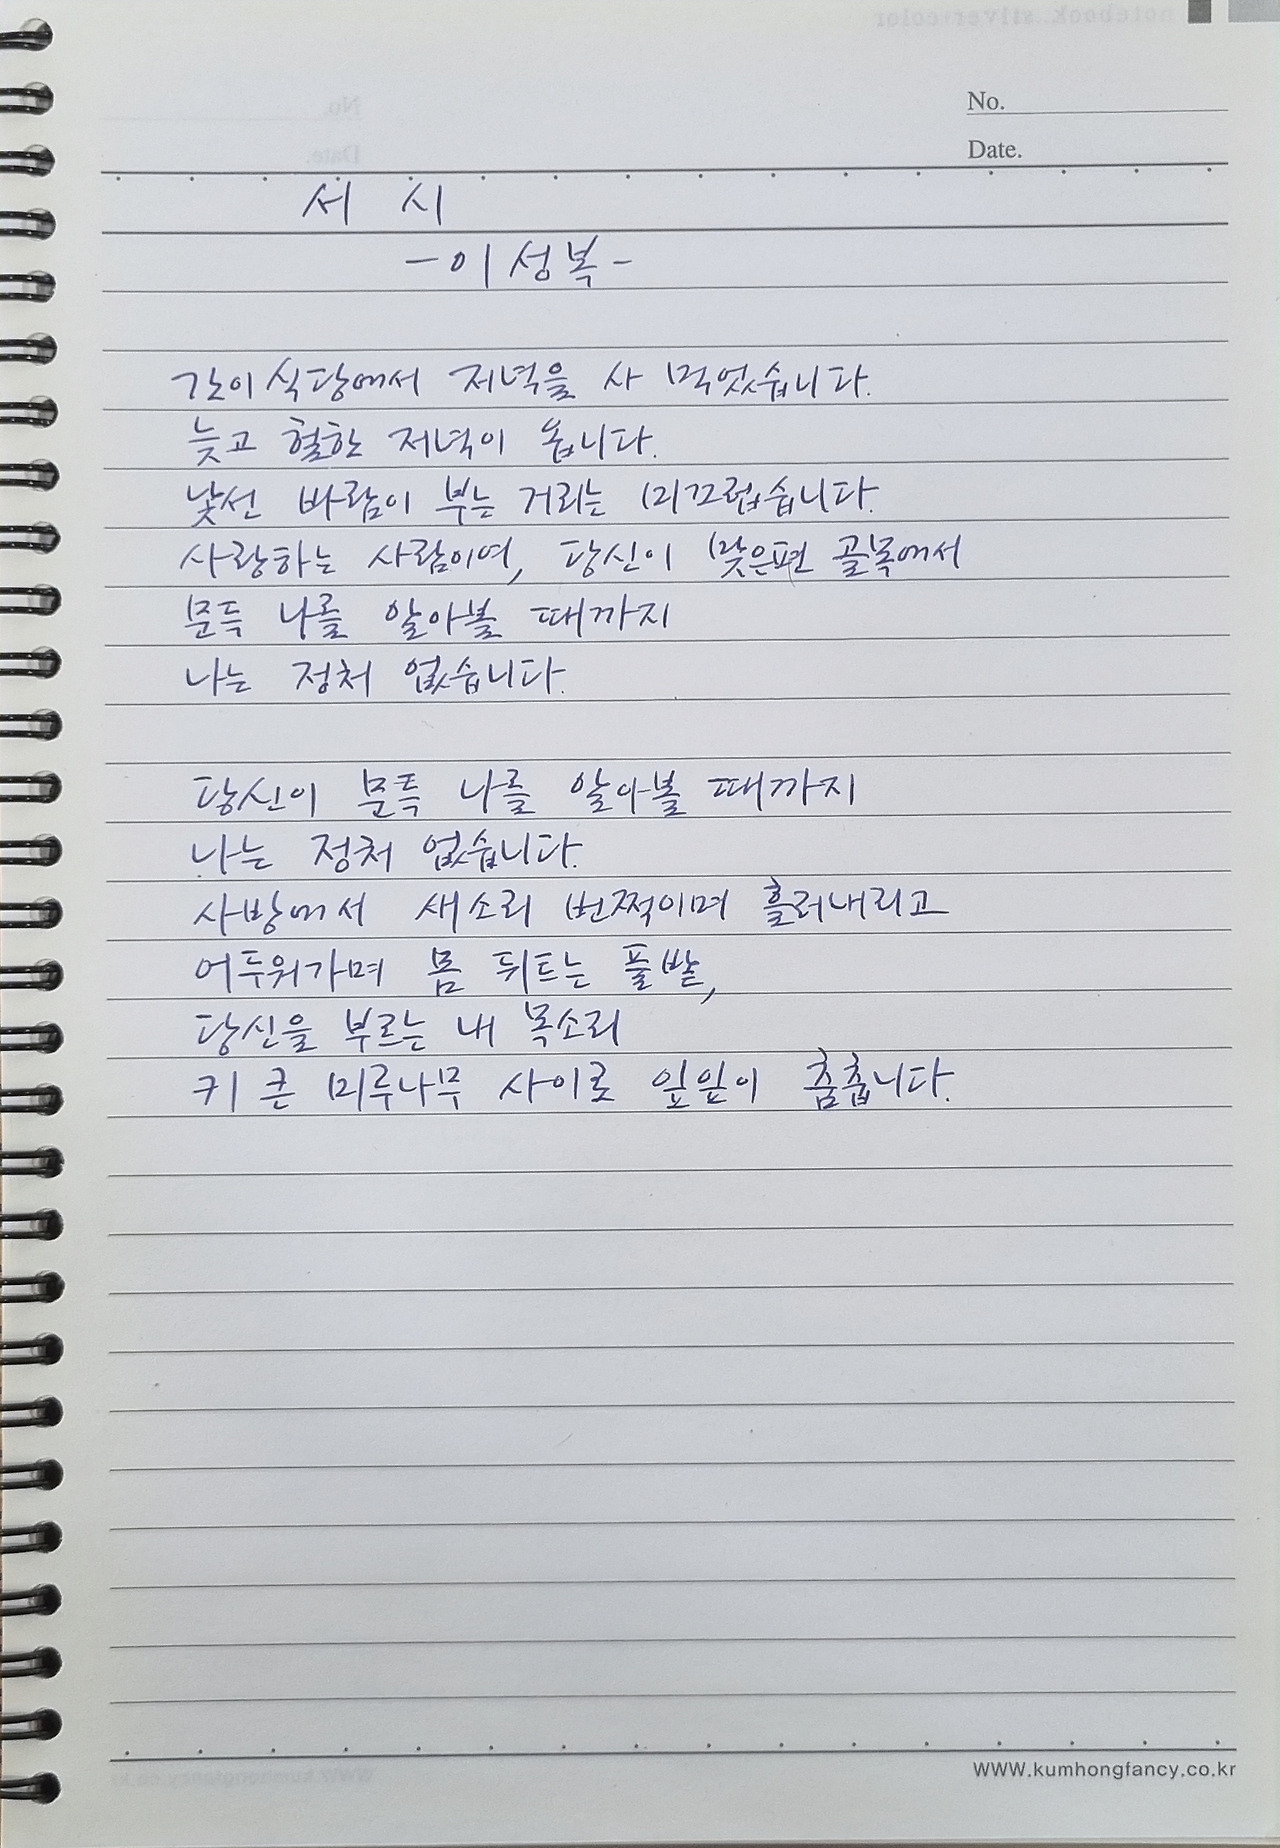 notebook. silver color
No.
Date.
서 시
- 이성복 -
간이식당에서 저녁을 사 먹었습니다.
늦고 헐한 저녁이 옵니다.
낯선 바람이 부는 거리는 미끄럽습니다.
사랑하는 사람이여, 당신이 맞은편 골목에서
문득 나를 알아볼 때까지
나는 정처 없습니다.
당신이 문득 나를 알아볼 때까지
나는 정처 없습니다.
사방에서 새소리 번쩍이며 흘러내리고
어두워가며 몸 뒤트는 풀밭,
당신을 부르는 내 목소리
키 큰 미루나무 사이로 잎잎이 춤춥니다.
WWW.kumhongfancy.co.kr